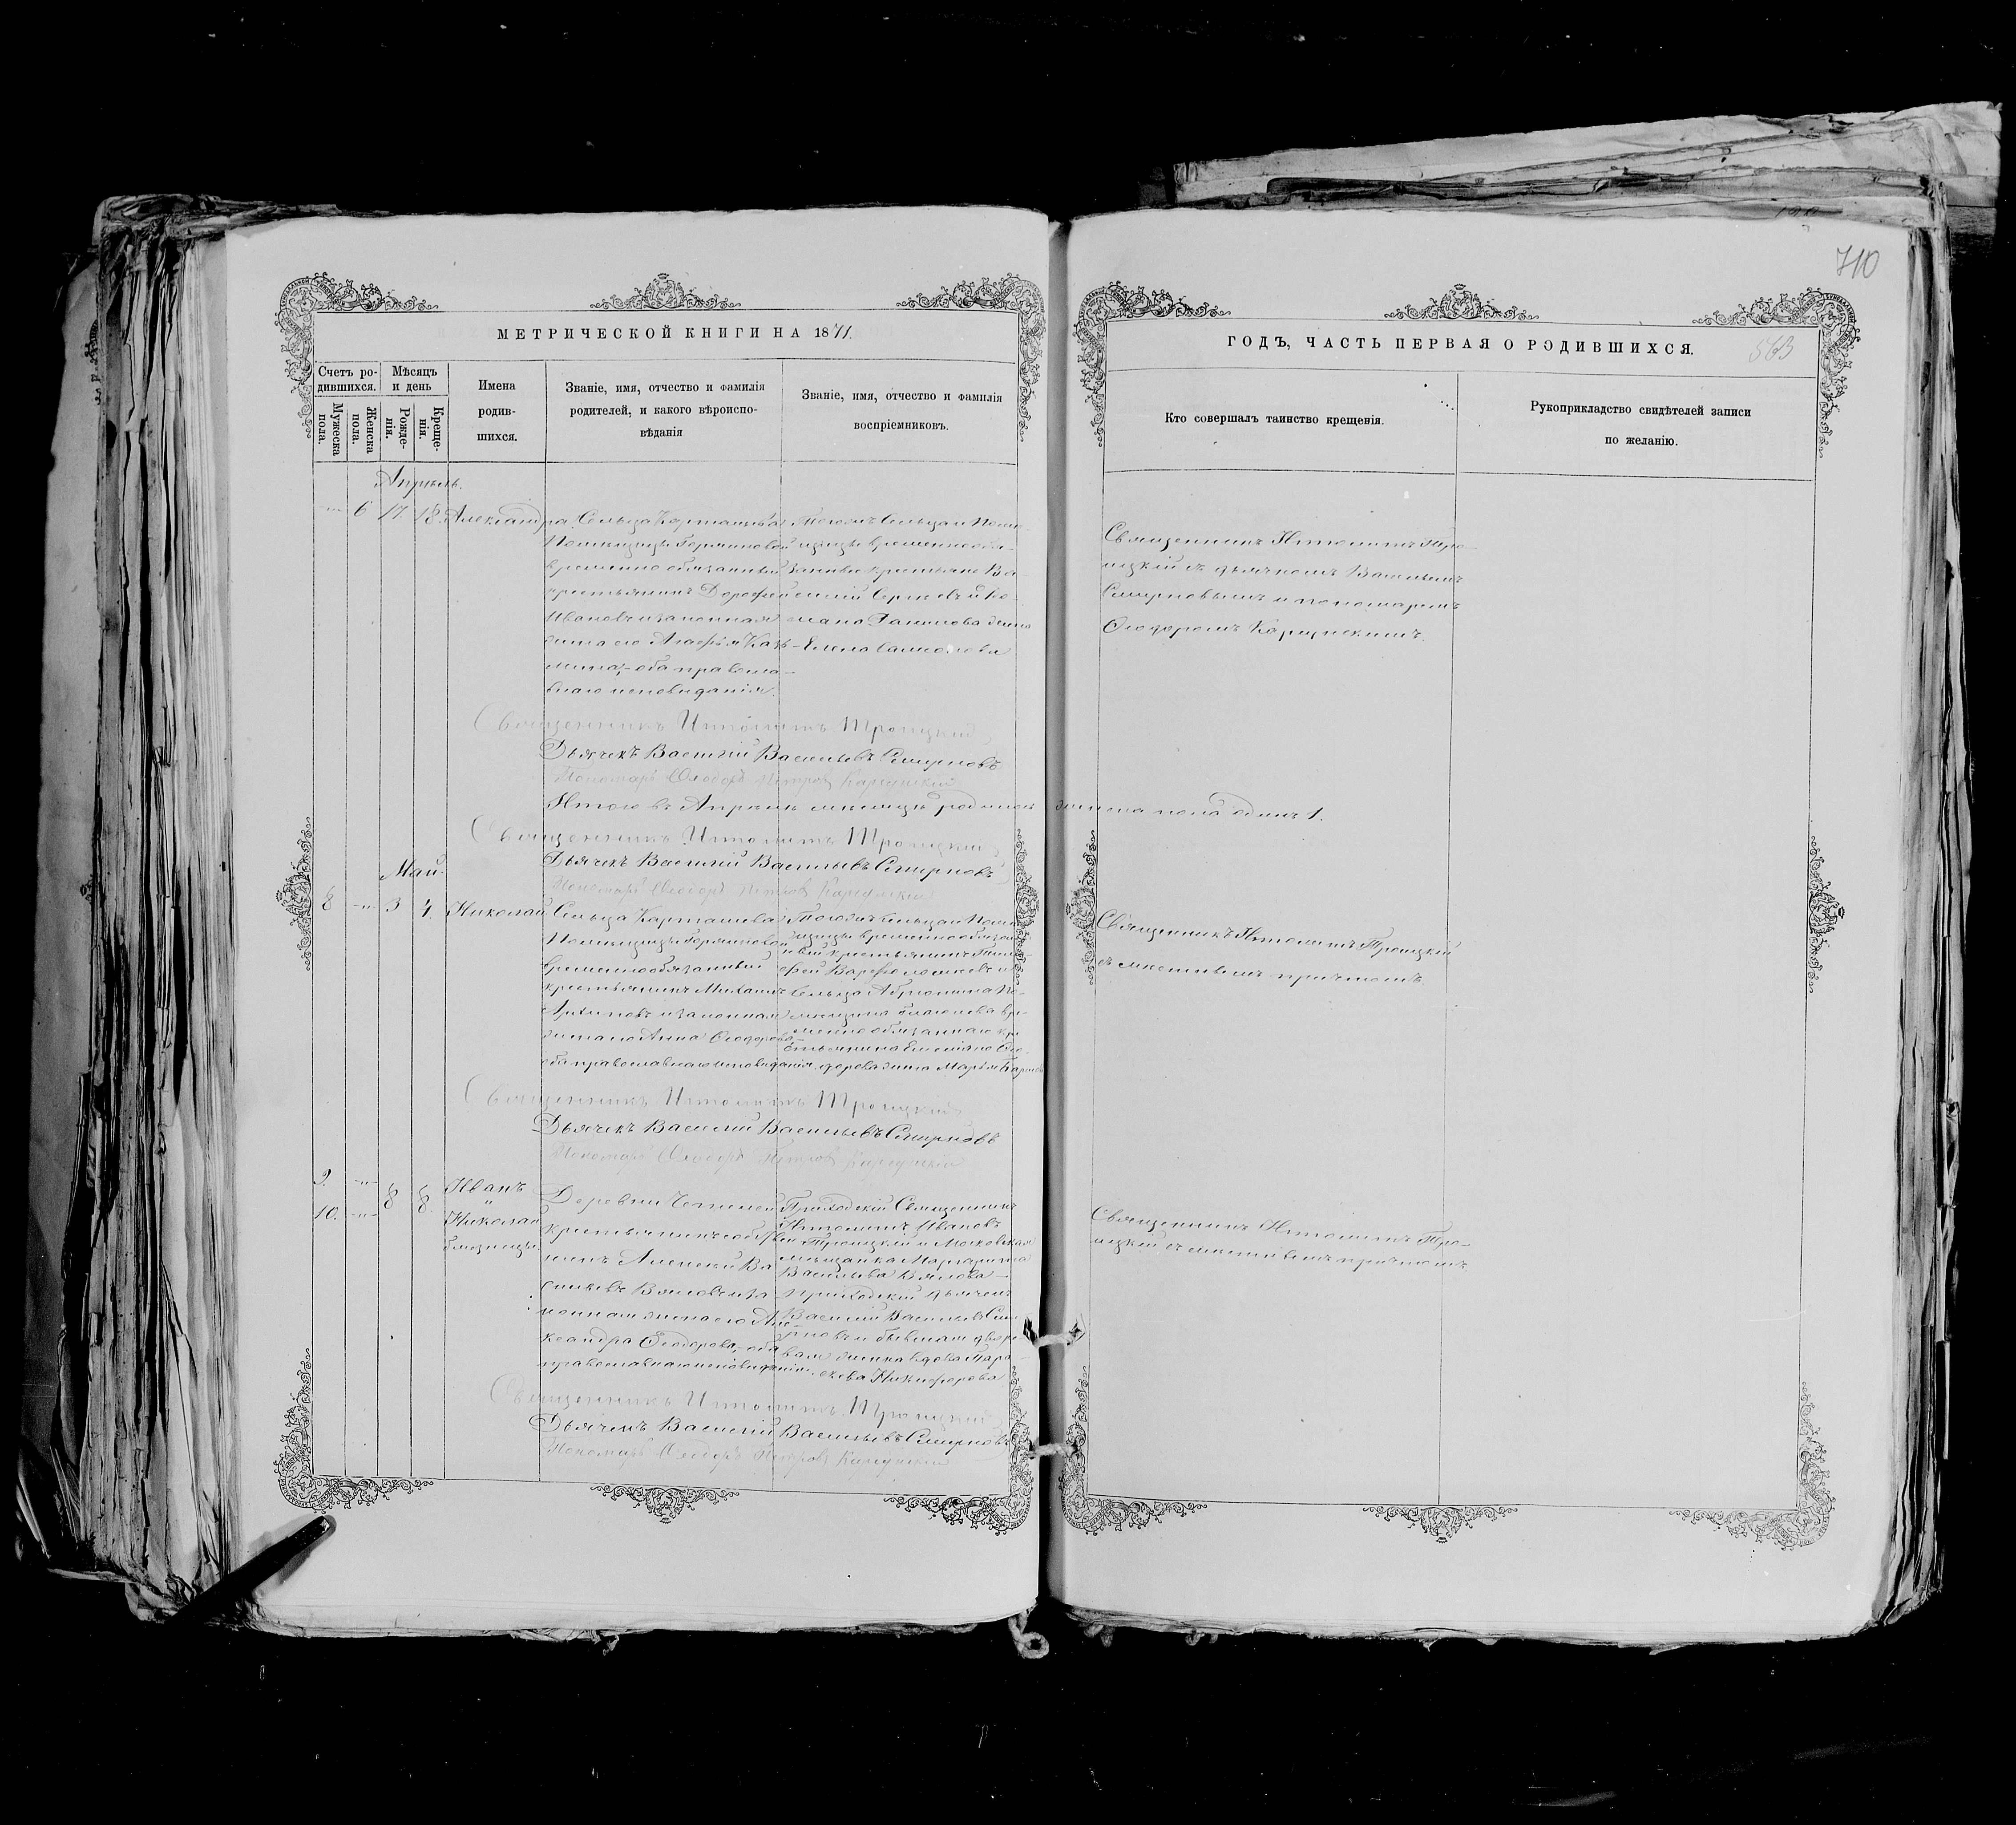 710
МЕТРИЧЕСКОЙ КНИГИ НА 1871.
ГОДЪ, ЧАСТЬ ПЕРВАЯ О РОДИВШИХСЯ.
563
Счетъ ро-
дившихся.
Мужеска
пола.
Женска
пола.
Мѣсяцъ
и день
Рожде-
нія.
Креще-
нія.
Имена
родив-
шихся.
Званіе, имя, отчество и фамилія
родителей, и какого вѣроиспо-
вѣданія
Званіе, имя, отчество и фамилія
воспріемниковъ.
Кто совершалъ таинство крещенія.
Рукоприкладство свидѣтелей записи
по желанію.
Апрѣль.
6 17. 18. Александра
Сельца Карташева
Помѣщицы
временнообязанный
крестьянинъ Дорофей
Ивановъ и законная
жена его Агафья
оба православ-
наго исповѣданія.
Тогожъ Сельца и Помѣ-
щицы временнообя-
занные крестьяне Ва-
силій Сергѣевъ и
жена
Елена
Священникъ Ипполитъ Тро-
ицкій съ дьячкомъ Васильемъ
Смирновымъ и пономаремъ
Ѳеодоромъ
Священникъ Ипполитъ Троицкій
Дьячекъ Василій Васильевъ Смирновъ
Пономарь Ѳеодоръ Петровъ
Итого въ Апрѣлѣ мѣсяцѣ родилось женска пола одинъ 1.
Священникъ Ипполитъ Троицкій
Дьячекъ Василій Васильевъ Смирновъ
Пономарь Ѳеодоръ Петровъ
Май.
8 3 4. Николай
Сельца Карташева
Помѣщицы
временнообязанный
крестьянинъ Михаилъ
Архиповъ и законная
жена его Анна Ѳеодорова
оба православнаго исповѣданія.
Тогожъ сельца и Помѣ-
щицы временнообязан-
ный крестьянинъ Тимо-
фей Варфоломеевъ и
Сельца
временнообязаннаго кре-
стьянина
жена Марья
Священникъ Ипполитъ Троицкій
съ мѣстнымъ причтомъ
Священникъ Ипполитъ Троицкій
Дьячекъ Василій Васильевъ Смирновъ
Пономарь Ѳеодоръ Петровъ
9. 8 8. Иванъ
и
10. Николай
близнецы.
Деревни
крестьянинъ собствен-
никъ Алексѣй Ва-
сильевъ и за-
конная жена его Але-
ксандра Ѳеодорова, оба
православнаго исповѣданія.
Приходскій Священникъ
Ипполитъ Ивановъ
Троицкій и Московская
мѣщанка Маргарита
Васильева
приходскій дьячекъ
Василій Васильевъ Сми-
рновъ и бывшая дворо-
вая вдова Пара-
скева Никифорова
Священникъ Ипполитъ Тро-
ицкій съ мѣстнымъ причтомъ
Священникъ Ипполитъ Троицкій
Дьячекъ Василій Васильевъ Смирновъ
Пономарь Ѳеодоръ Петровъ